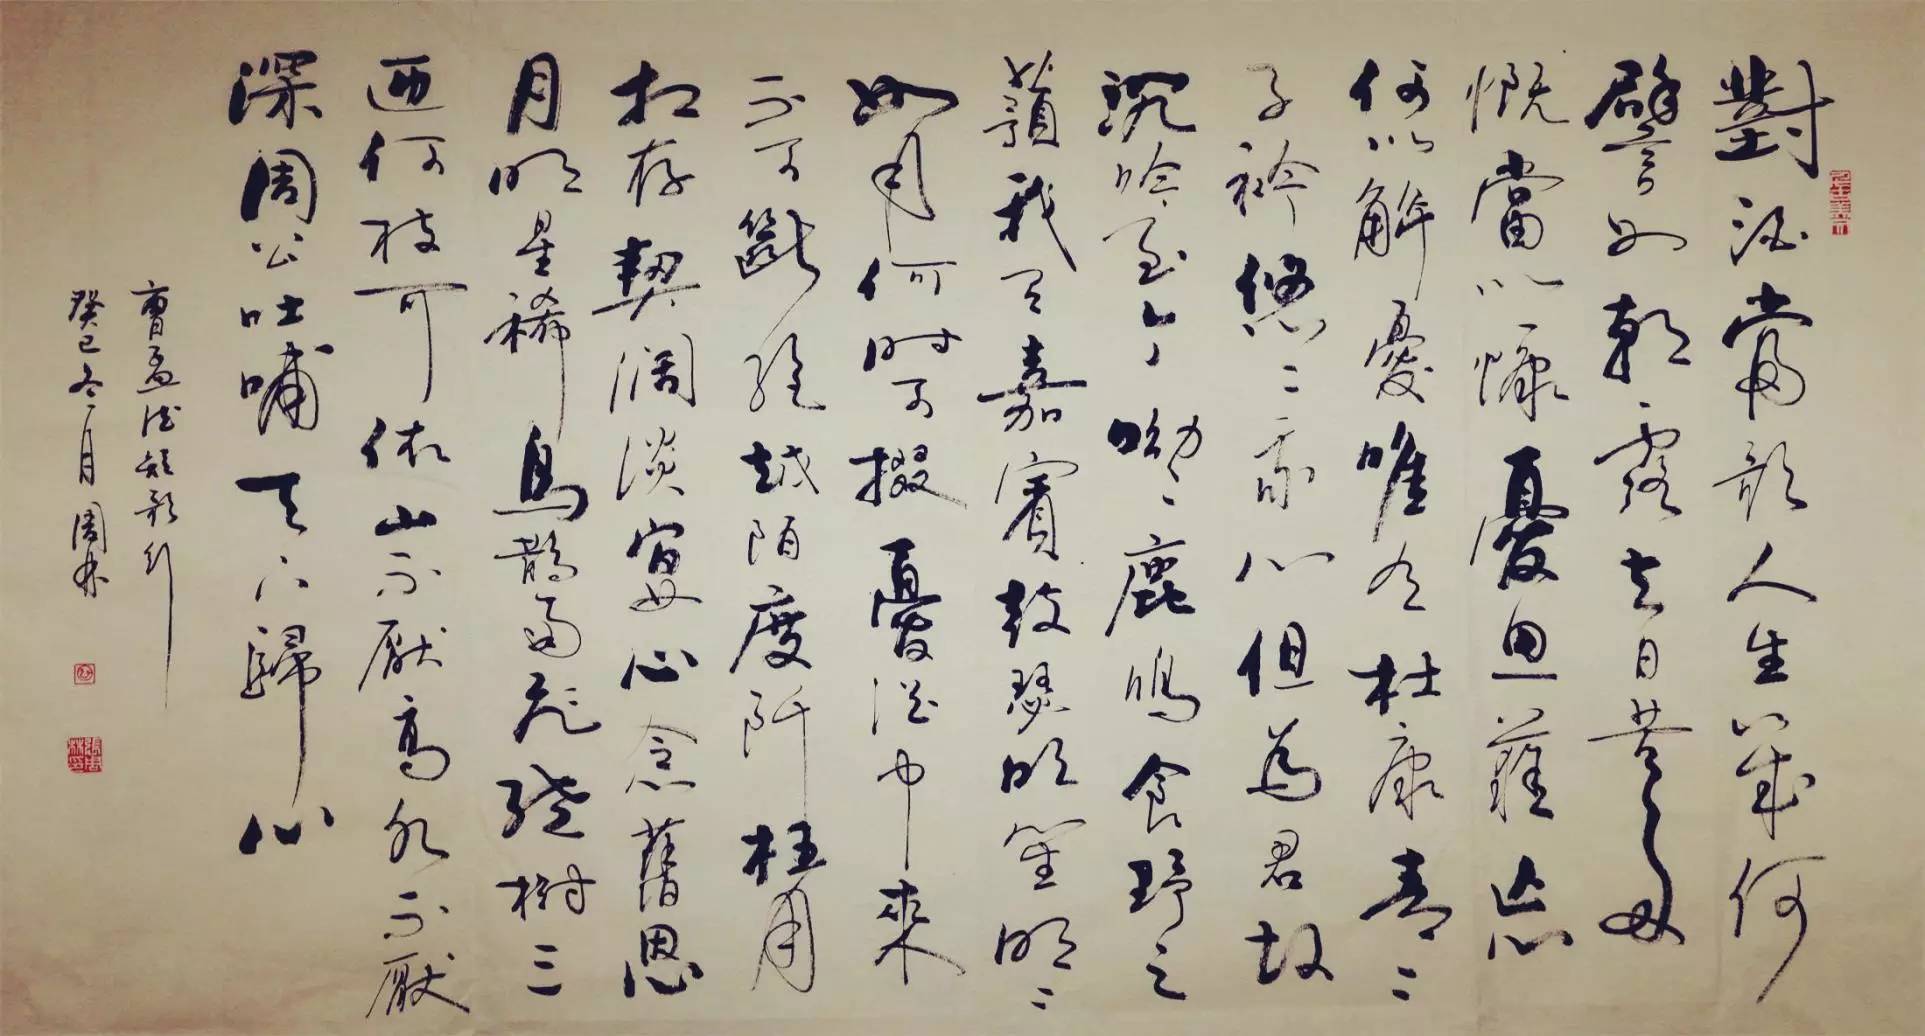 對酒當歌人生幾何
譬如朝露去日苦多
慨當以慷憂思難忘
何以解憂唯有杜康青〻
子衿悠〻我心但為君故
沉吟至今呦〻鹿鳴食野之
蘋我有嘉賓鼓瑟吹笙明〻
如月何時可掇憂從中來
不可斷絕越陌度阡枉用
相存契闊談宴心念舊恩
月明星稀烏鵲南飛繞樹三
匝何枝可依山不厭高水不厭
深周公吐哺天下歸心
曹孟德短歌行
癸巳冬月周林
張周林印